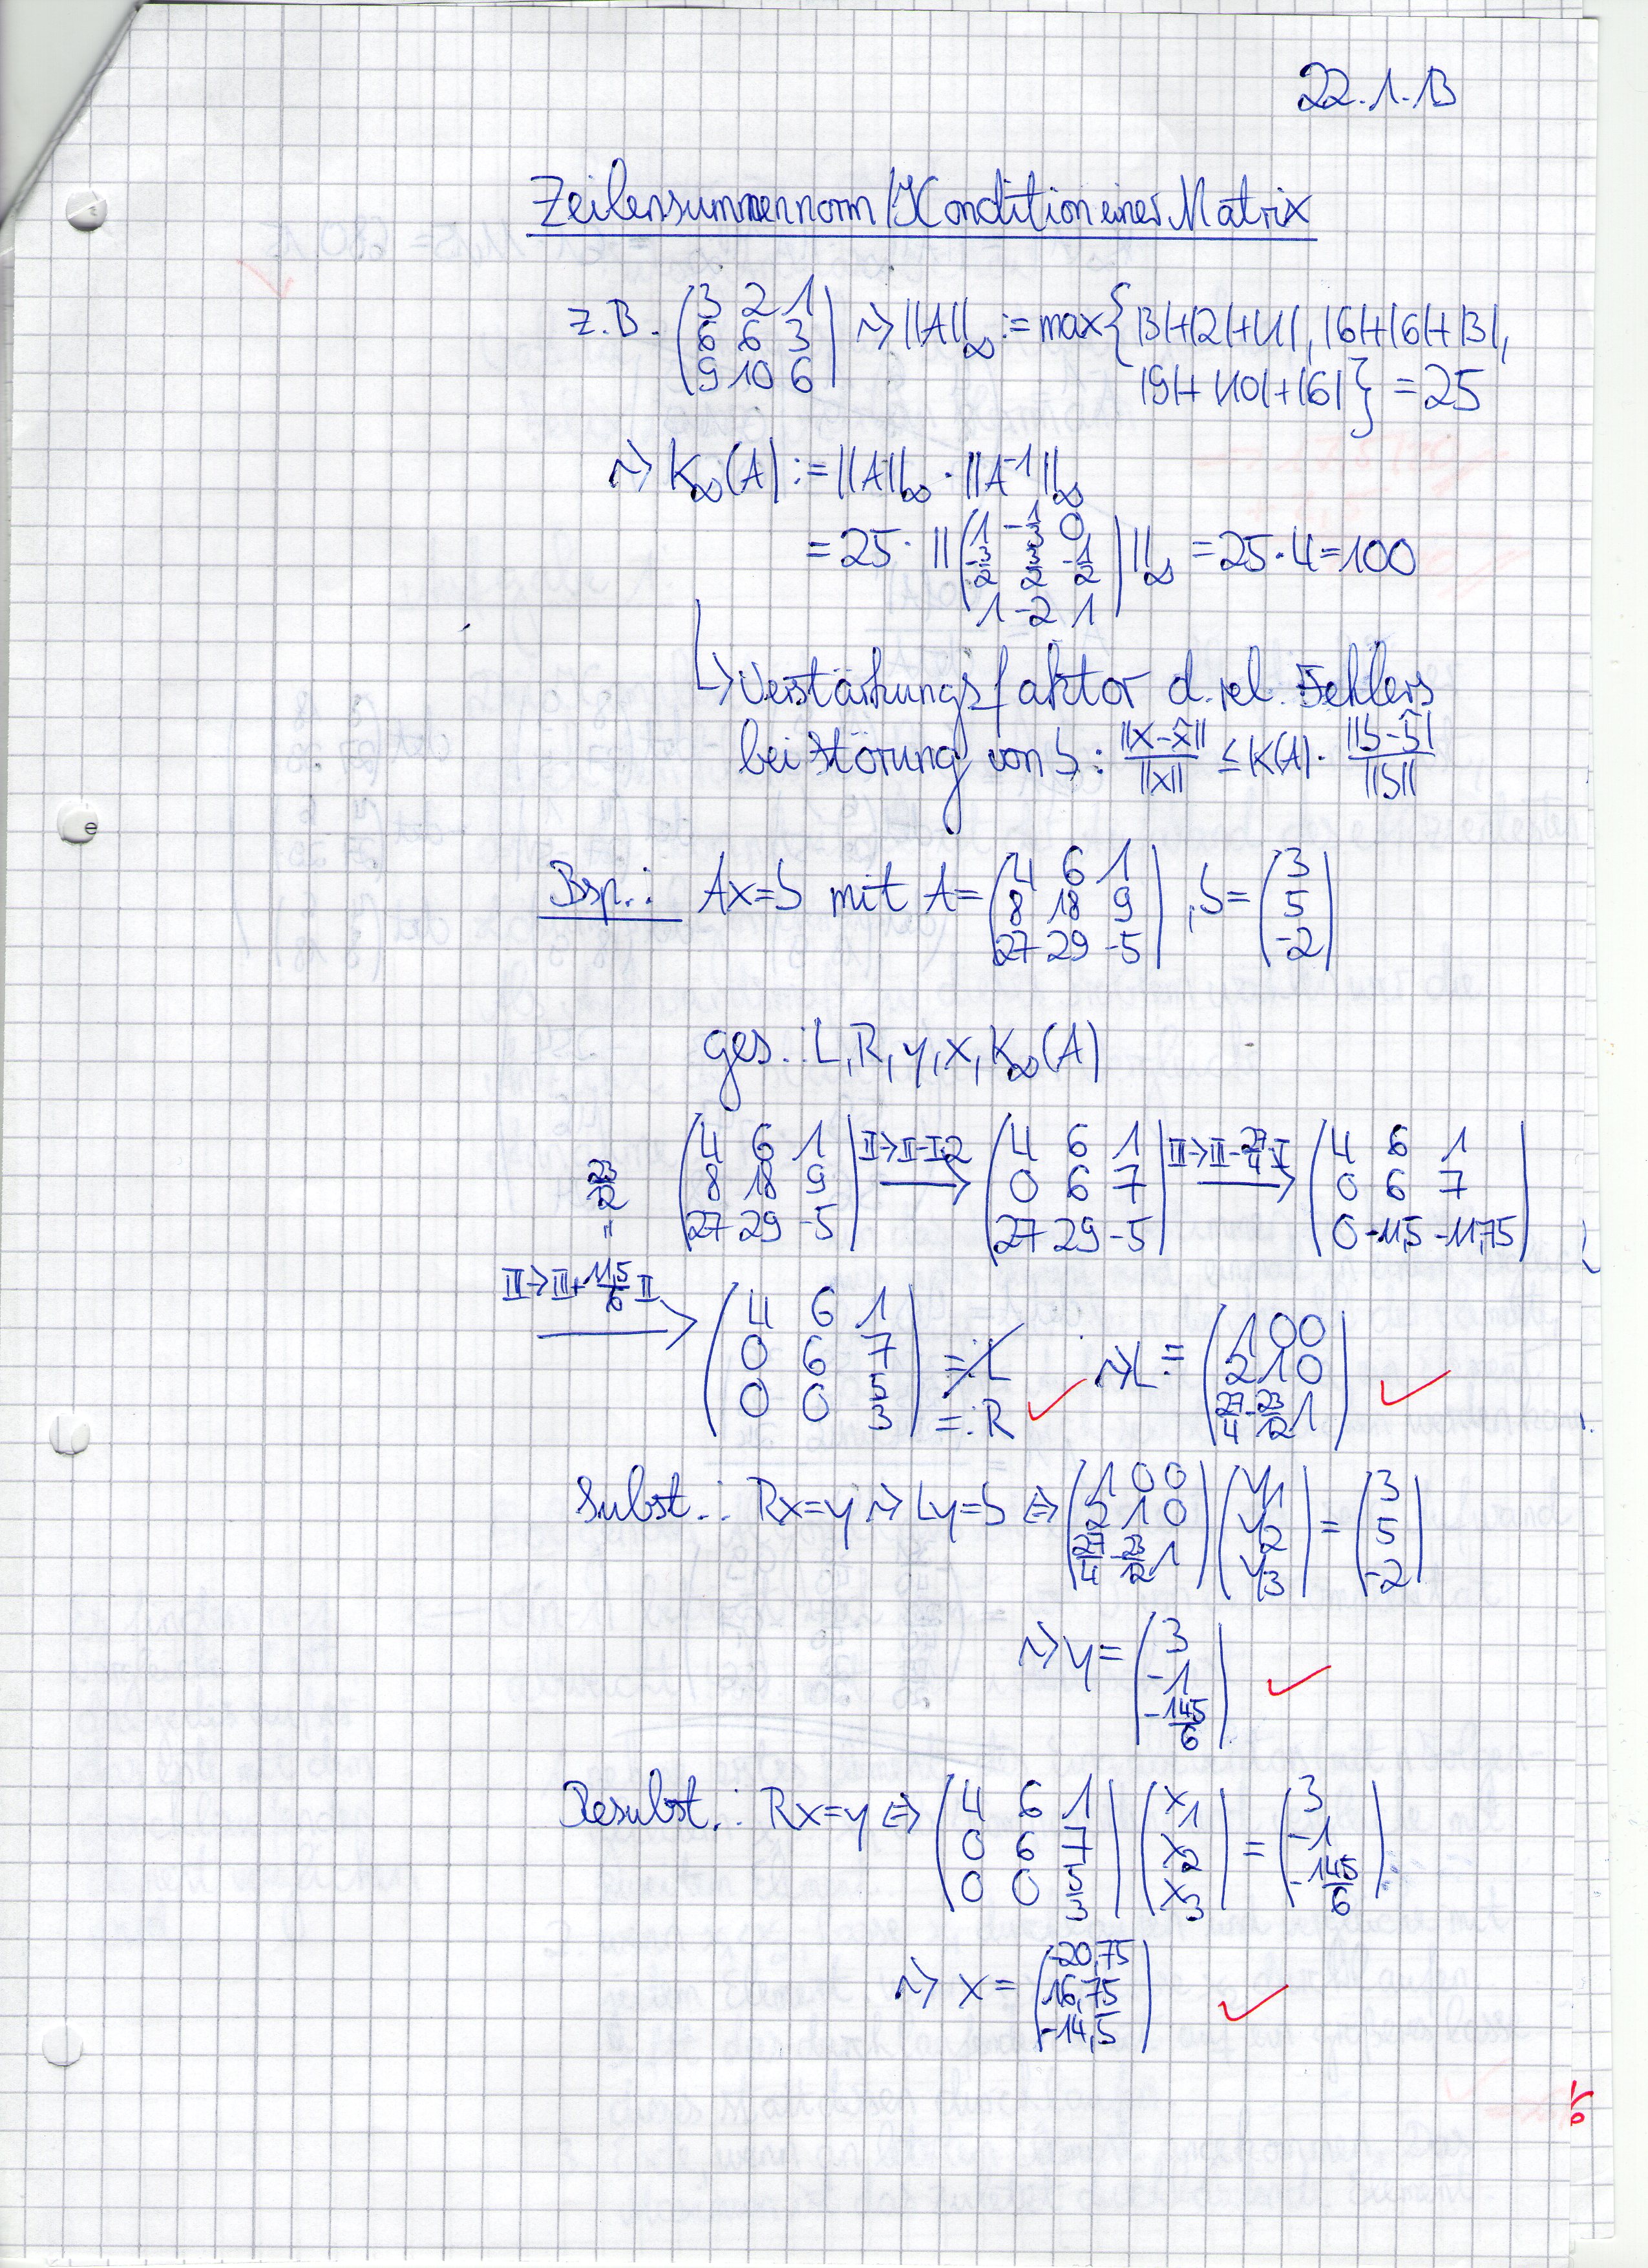 22.1.13
Zeilensummennorm / Kondition einer Matrix
z.B. (3 2 1; 6 6 3; 9 10 6) ⇝ ||A||∞ := max{ |3|+|2|+|1|, |6|+|6|+|3|,
|9|+|10|+|6| } = 25
⇝ K∞(A) := ||A||∞ · ||A⁻¹||∞
= 25 · ||(1 -1/3 0; -3/2 3/2 -1/2; 1 -2 1)||∞ = 25 · 4 = 100
↳ Verstärkungsfaktor d. rel. Fehlers
bei Störung von b : ||x-x̃||/||x|| ≤ K(A) · ||b-b̃||/||b||
Bsp.: Ax=b mit A = (4 6 1; 8 18 9; 27 29 -5), b = (3; 5; -2)
ges.: L, R, y, x, K∞(A)
(4 6 1; 8 18 9; 27 29 -5) II→II-I·2 (4 6 1; 0 6 7; 27 29 -5) III→III-27/4·I (4 6 1; 0 6 7; 0 -11,5 -11,75)
23/12 =
III→III+11,5/6 II (4 6 1; 0 6 7; 0 0 5/3) =: L =: R ✓ ⇝ L = (1 0 0; 2 1 0; 27/4 -23/12 1) ✓
Subst.: Rx=y ⇝ Ly=b ⇔ (1 0 0; 2 1 0; 27/4 -23/12 1) (y1; y2; y3) = (3; 5; -2)
⇝ y = (3; -1; -145/6) ✓
Resubst.: Rx=y ⇔ (4 6 1; 0 6 7; 0 0 5/3) (x1; x2; x3) = (3; -1; -145/6)
⇝ x = (-20,75; 16,75; -14,5) ✓